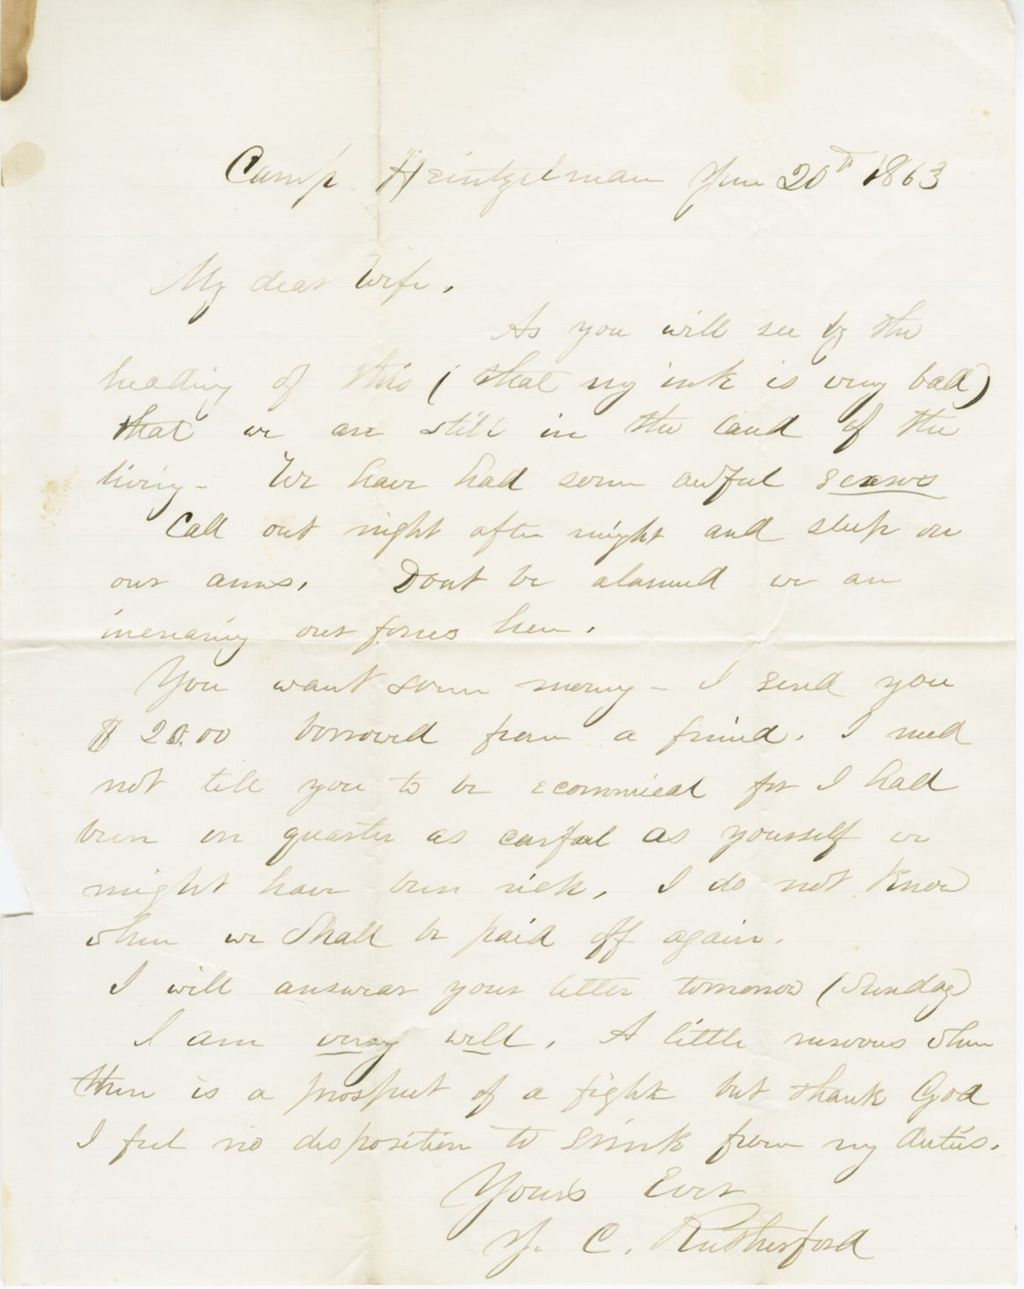 Camp Heintzelman June 20th 1863
My dear Wife,
As you will see by the
heading of this (that my ink is very bad)
that we are still in the land of the
living - We have had some awful scares
Call out night after night and sleep on
our arms, Dont be alarmed we are
increasing our forces here.
You want some money - I send you
$20.00 borrowed from a friend. I need
not tell you to be economical for I had
been on quarter as carful as yourself we
might have been rich, I do not know
when we shall be paid off again.
I will answear your letter tomorrow (Sunday)
I am very well, A little nervous when
there is a prospect of a fight but thank God
I feel no disposition to srink from my duties.
Yours Ever
J. C. Rutherford